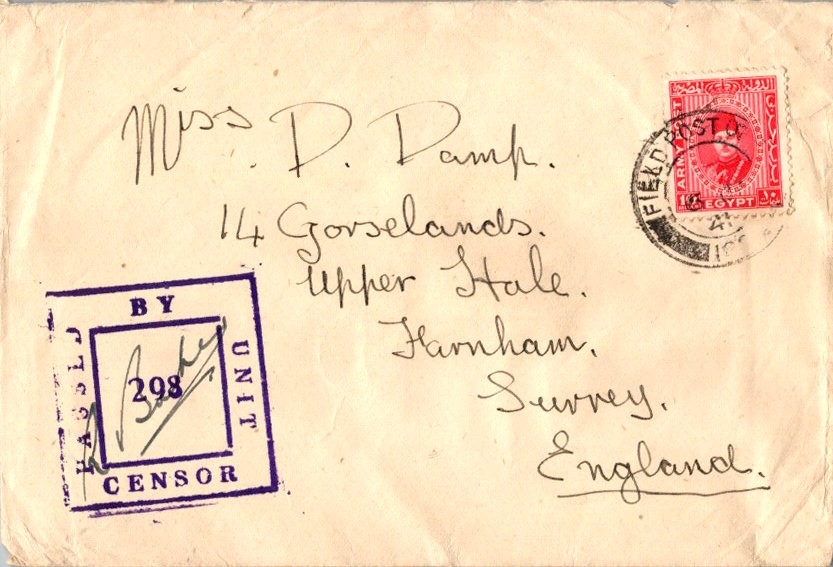 Miss. D. Damp.
14 Gorselands.
Upper Hale.
Farnham.
Surrey.
England.
ARMY POST
EGYPT
FIELD POST
41
PASSED
BY
UNIT
CENSOR
298